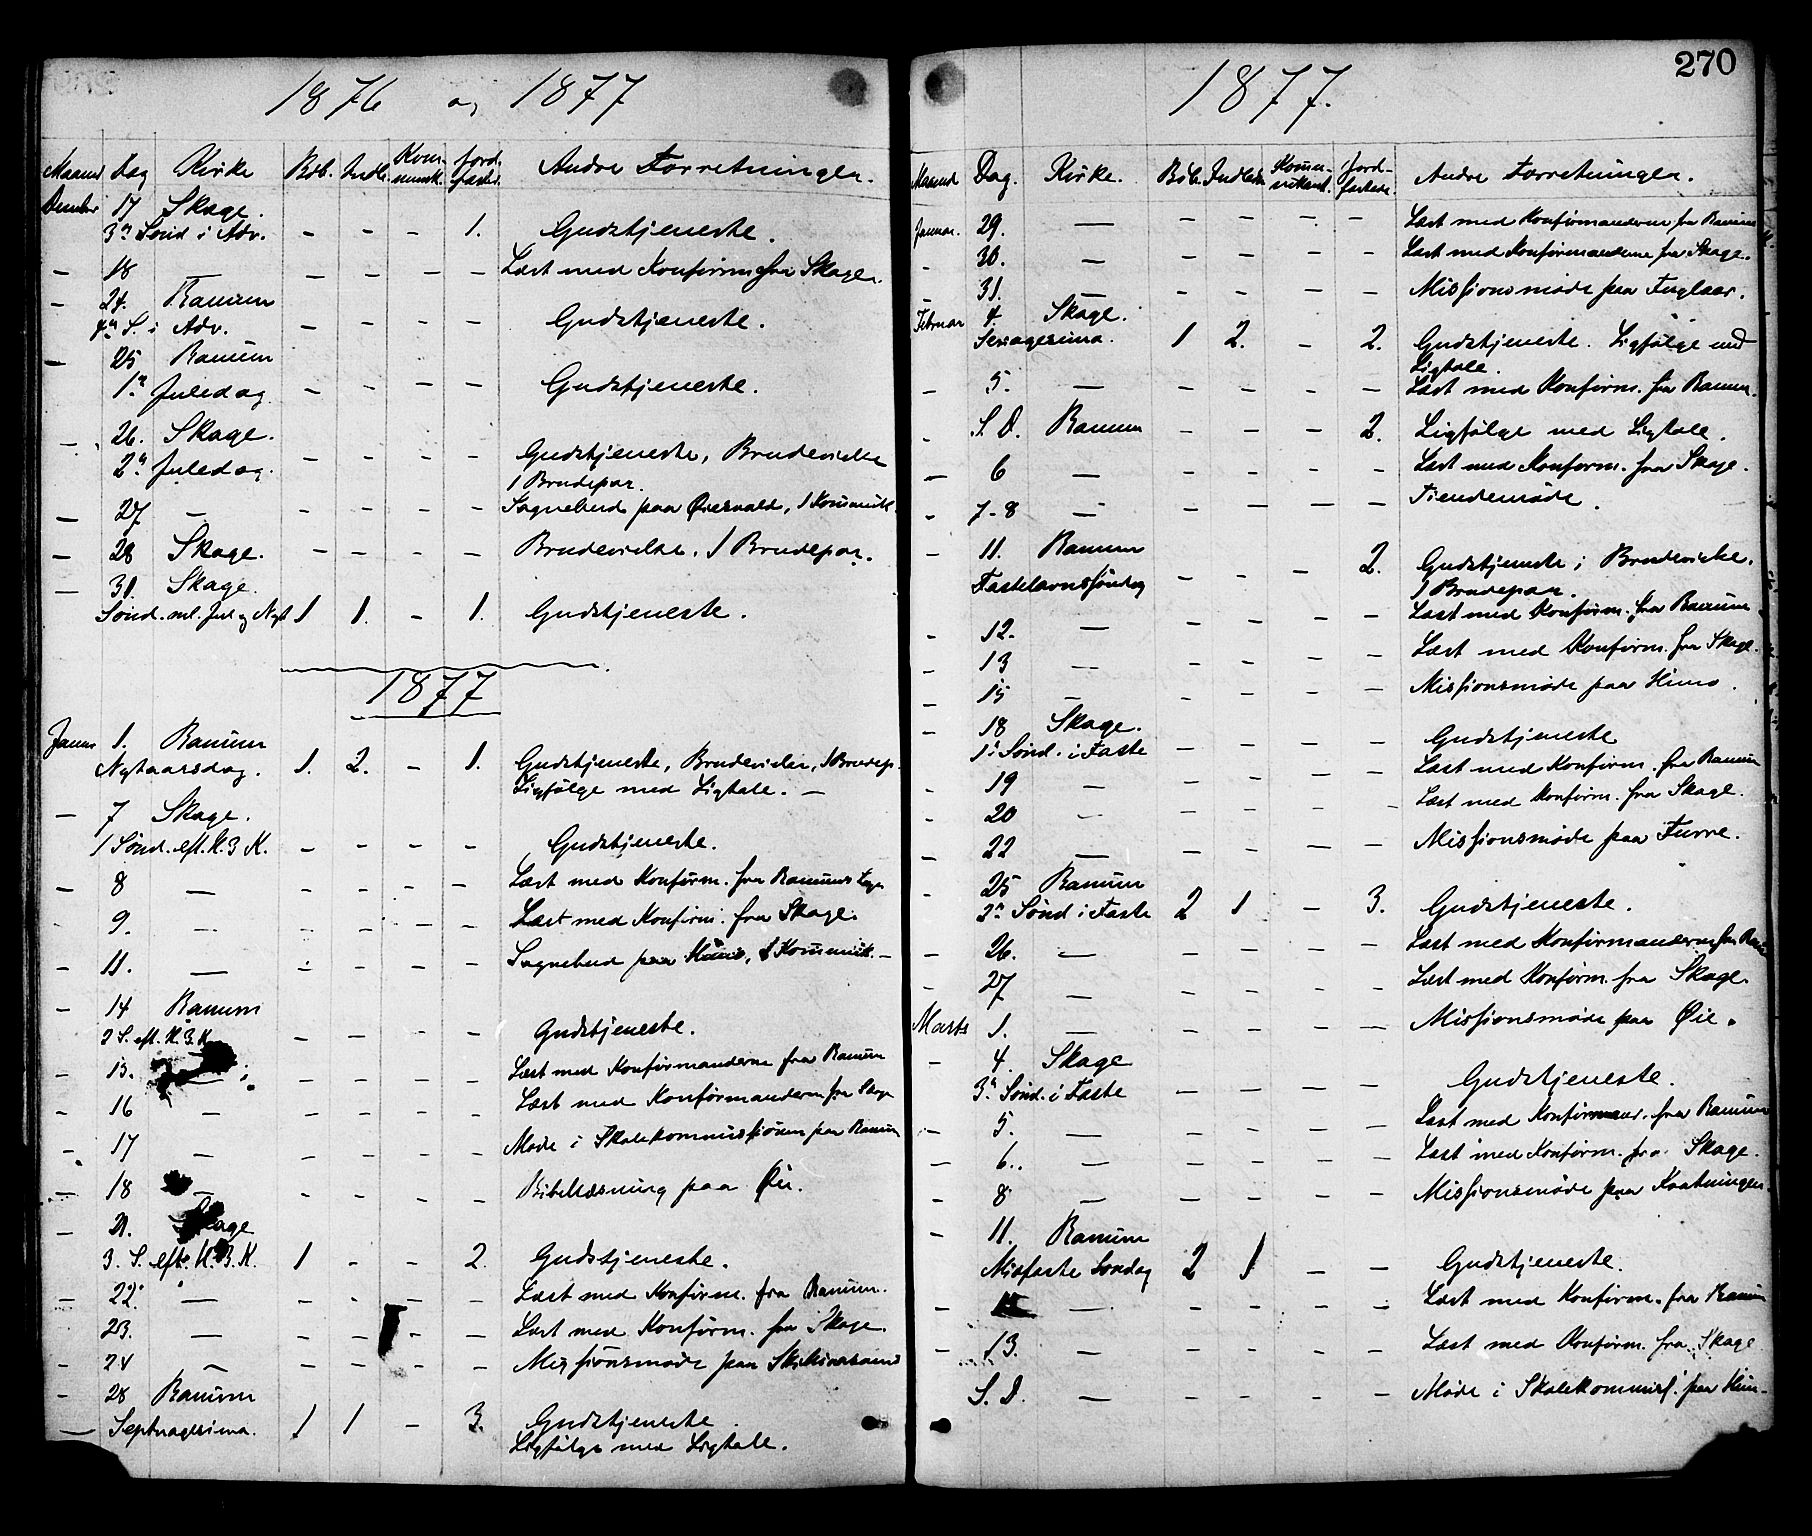 1876 og 1877
Maaned Dag Kirke Døb. Indle. Kommunik. Jordfæstd. Andre Forretninger.
December 17 Skage.
3die Sønd i Adv. - - - 1. Gudstjeneste.
- 18 — - - - - Læst med Konfirm fra Skage.
- 24. Ranum
4de S. i Adv. - - - - Gudstjeneste.
- 25 Ranum
1ste Juledag - - - - Gudstjeneste.
- 26. Skage.
2den Juledag. - - - - Gudstjeneste, Brudevielse
1 Brudepar.
- 27 — - - - - Sognebud paa Øiesvold, 1 Kommunik.
- 28 Skage. - - - - Brudevielse. 1 Brudepar.
- 31. Skage.
Sønd. ml. Jul og Nyt 1 1. - 1. Gudstjeneste.
1877
Januar 1. Ranum
Nytaarsdag. 1. 2. - 1. Gudstjeneste, Brudevielse, 1 Brudep.
Ligfølge med Ligtale. —
- 7 Skage.
1 Sønd. eft. H. 3 K. - - - - Gudstjeneste.
- 8 — - - - - Læst med Konfirm. fra Ranums Sogn
- 9. — - - - - Læst med Konfirm. fra Skage.
- 11. — - - - - Sognebud paa Kommunik. -
- 14 Ranum
2 S. eft. H. 3. K - - - - Gudstjeneste.
- 15. - - - - Læst med Konfirmanderne fra Ranum
- 16 — - - - - Læst med Konfirmanderne fra Skage
- 17 — - - - - Møde i Skolekommissionen paa Ranum
- 18 — - - - - Bibellæsning paa Øie.
- 21. Skage
3. S. eft. H. 3. K. 1 - - 2. Gudstjeneste.
- 22. — - - - - Læst med Konfirm. fra Ranum.
23. — - - - - Læst med Konfirm. fra Skage.
- 24 — - - - - Missionsmøde paa
- 28 Ranum
Septuagesima. 1 1 - 3. Gudstjeneste.
Ligfølge med Ligtale.
270
1877.
Maaned Dag. Kirke. Døb. Indledte Kommunikant. Jordfæstede. Andre Forretninger.
Januar. 29. — - - - - Læst med Konfirmanderne fra Ranum
- 30. — - - - - Læst med Konfirmanderne fra Skage.
- 31. — - - - - Missionsmøde paa Fuglaar.
Februar 4. Skage.
Sexagesima. 1 2. - 2. Gudstjeneste. Ligfølge med
Ligtale.
- 5. — - - - - Læst med Konfirm. fra Ranum.
- S. D. Ranum - - - 2. Ligfølge med Ligtale.
- 6 — - - - - Læst med Konform. fra Skage.
- 7-8 — - - - - Tiendemøde.
- 11. Ranum
Fastelavnssøndag - - - 2. Gudstjeneste i Brudevielse.
1 Brudepar.
- 12. — - - - - Læst med Konfirm. fra Ranum
- 13 — - - - - Læst med Konfirm. fra Skage.
- 15 — - - - - Missionsmøde paa Himo.
- 18 Skage.
1ste Sønd. i Faste - - - - Gudstjeneste
- 19 — - - - - Læst med Konfirm. fra Ranum
- 20 — - - - - Læst med Konfirm. fra Skage.
- 22 — - - - - Missionsmøde paa Furre.
- 25 Ranum
2den Sønd i Faste 2 1 - 3. Gudstjeneste.
- 26. — - - - - Læst med Konfirmanderne fra Ranum
- 27 — - - - - Læst med Konfirm. fra Skage.
Marts 1. — - - - - Missionsmøde paa Øie.
- 4. Skage
3die Sønd. i Faste - - - - Gudstjeneste.
- 5. — - - - - Læst med Konfirmanr. fra Ranum
- 6. — - - - - Læst med Konfirm. fra Skage.
- 8 — - - - - Missionsmøde paa
- 11. Ranum
Midfaste Søndag 2 1 - - Gudstjeneste.
- — - - - - Læst med Konfirm. fra Ranum
- 13. — - - - - Læst med Konfirm. fra Skage
S. D. — - - - - Møde i Skolekommiss. paa Him-